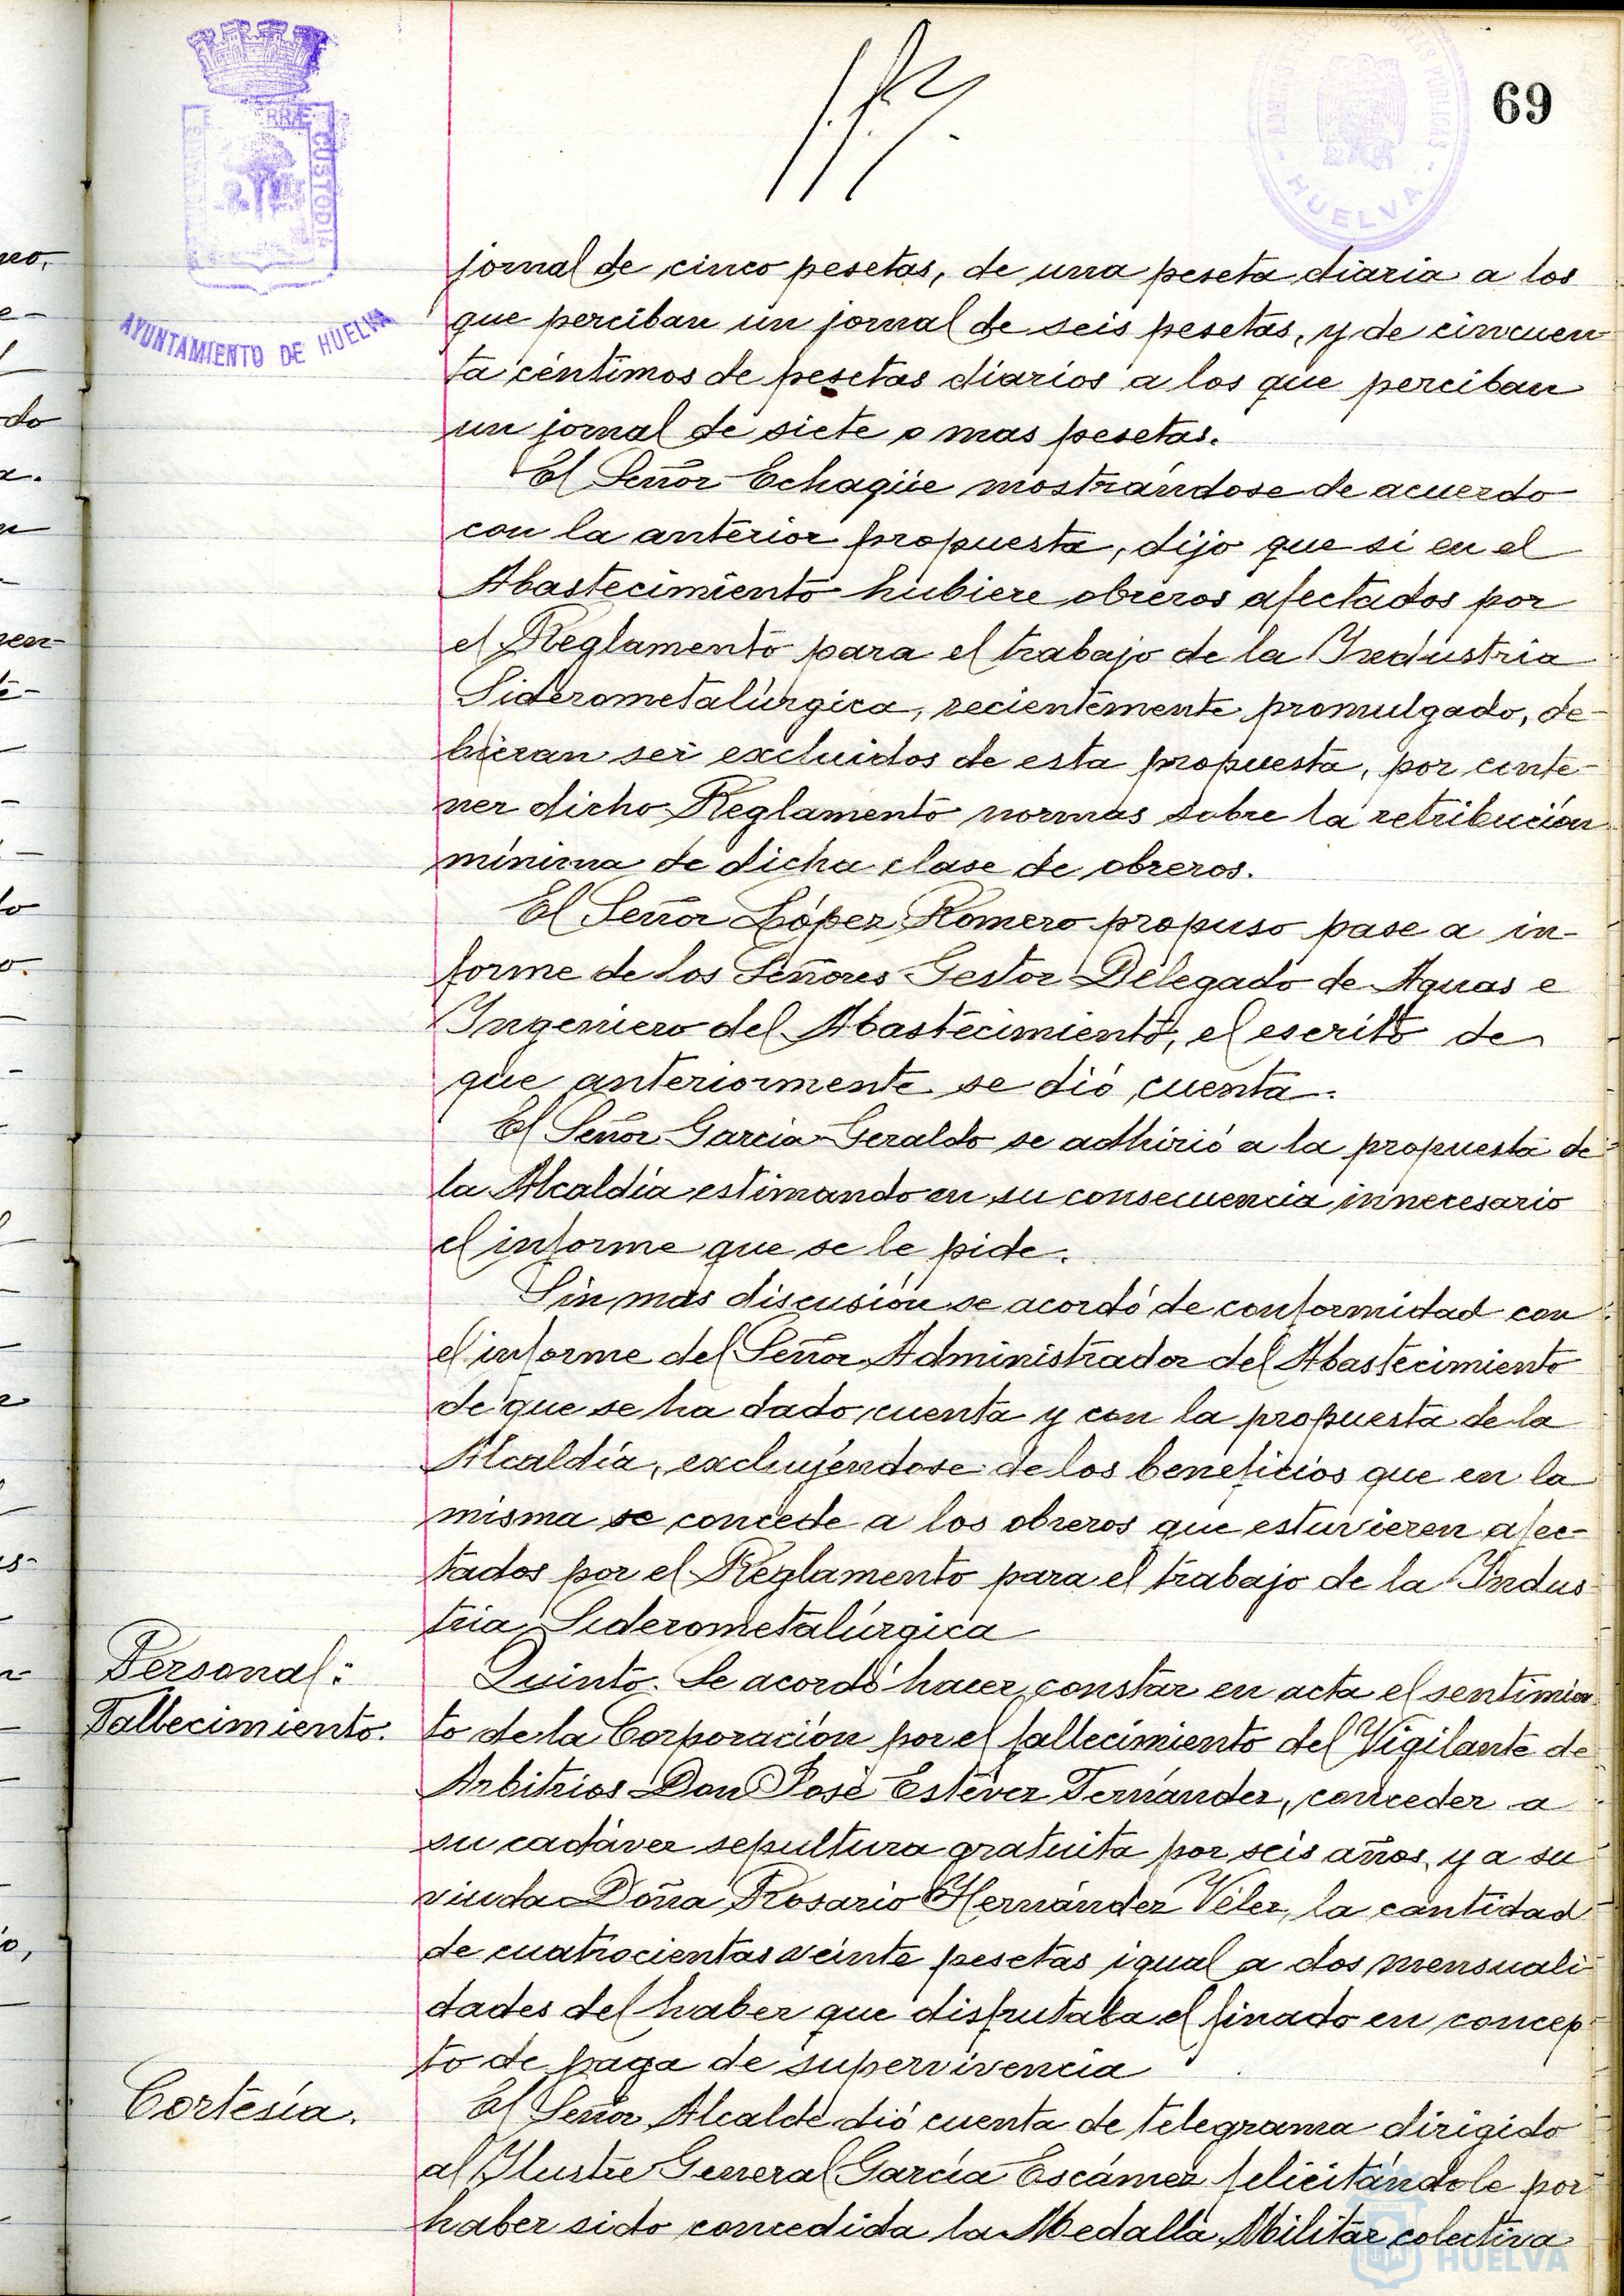 69
TERRÆ
CUSTODIA
AYUNTAMIENTO DE HUELVA
HUELVA
jornal de cinco pesetas, de una peseta diaria a los
que perciban un jornal de seis pesetas, y de cincuen
ta céntimos de pesetas diarios a los que perciban
un jornal de siete o mas pesetas.
El Señor Echagüe mostrándose de acuerdo
con la anterior propuesta, dijo que si en el
Abastecimiento hubiere obreros afectados por
el Reglamento para el trabajo de la Industria
Siderometalúrgica, recientemente promulgado, de-
bieran ser excluidos de esta propuesta, por conte-
ner dicho Reglamento normas sobre la retribución
mínima de dicha clase de obreros.
El Señor López Romero propuso pase a in-
forme de los Señores Gestor Delegado de Aguas e
Ingeniero del Abastecimiento, el escrito de
que anteriormente se dió cuenta.
El Señor Garcia Geraldo se adhirió a la propuesta de
la Alcaldía estimando en su consecuencia innecesario
el informe que se le pide.
Sin mas discusión se acordó de conformidad con
el informe del Señor Administrador del Abastecimiento
de que se ha dado cuenta y con la propuesta de la
Alcaldía, excluyéndose de los beneficios que en la
misma se concede a los obreros que estuvieren afec-
tados por el Reglamento para el trabajo de la Indus
tria Siderometalúrgica
Personal:
Fallecimiento.
Quinto. Se acordó hacer constar en acta el sentimien
to de la Corporación por el fallecimiento del Vigilante de
Arbitrios Don José Estévez Fernández, conceder a
su cadáver sepultura gratuita por seis años, y a su
viuda Doña Rosario Hernández Vélez, la cantidad
de cuatrocientas veinte pesetas igual a dos mensuali
dades del haber que disfrutaba el finado en concep
to de paga de supervivencia
Cortesía.
El Señor Alcalde dió cuenta de telegrama dirigido
al Ilustre General García Escámez felicitándole por
haber sido concedida la Medalla Militar colectiva
HUELVA